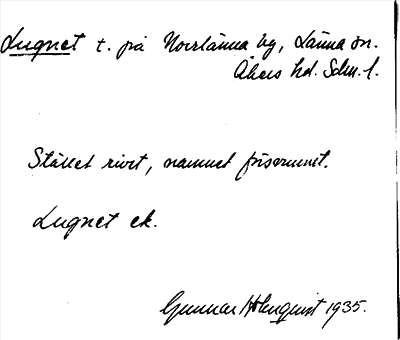 Lugnet t. på Norrlänna by, Länna sn.
Åkers hd. Sdm. l.
Stället rivet, namnet försvunnet.
Lugnet ek.
Gunnar Holmquist 1935.